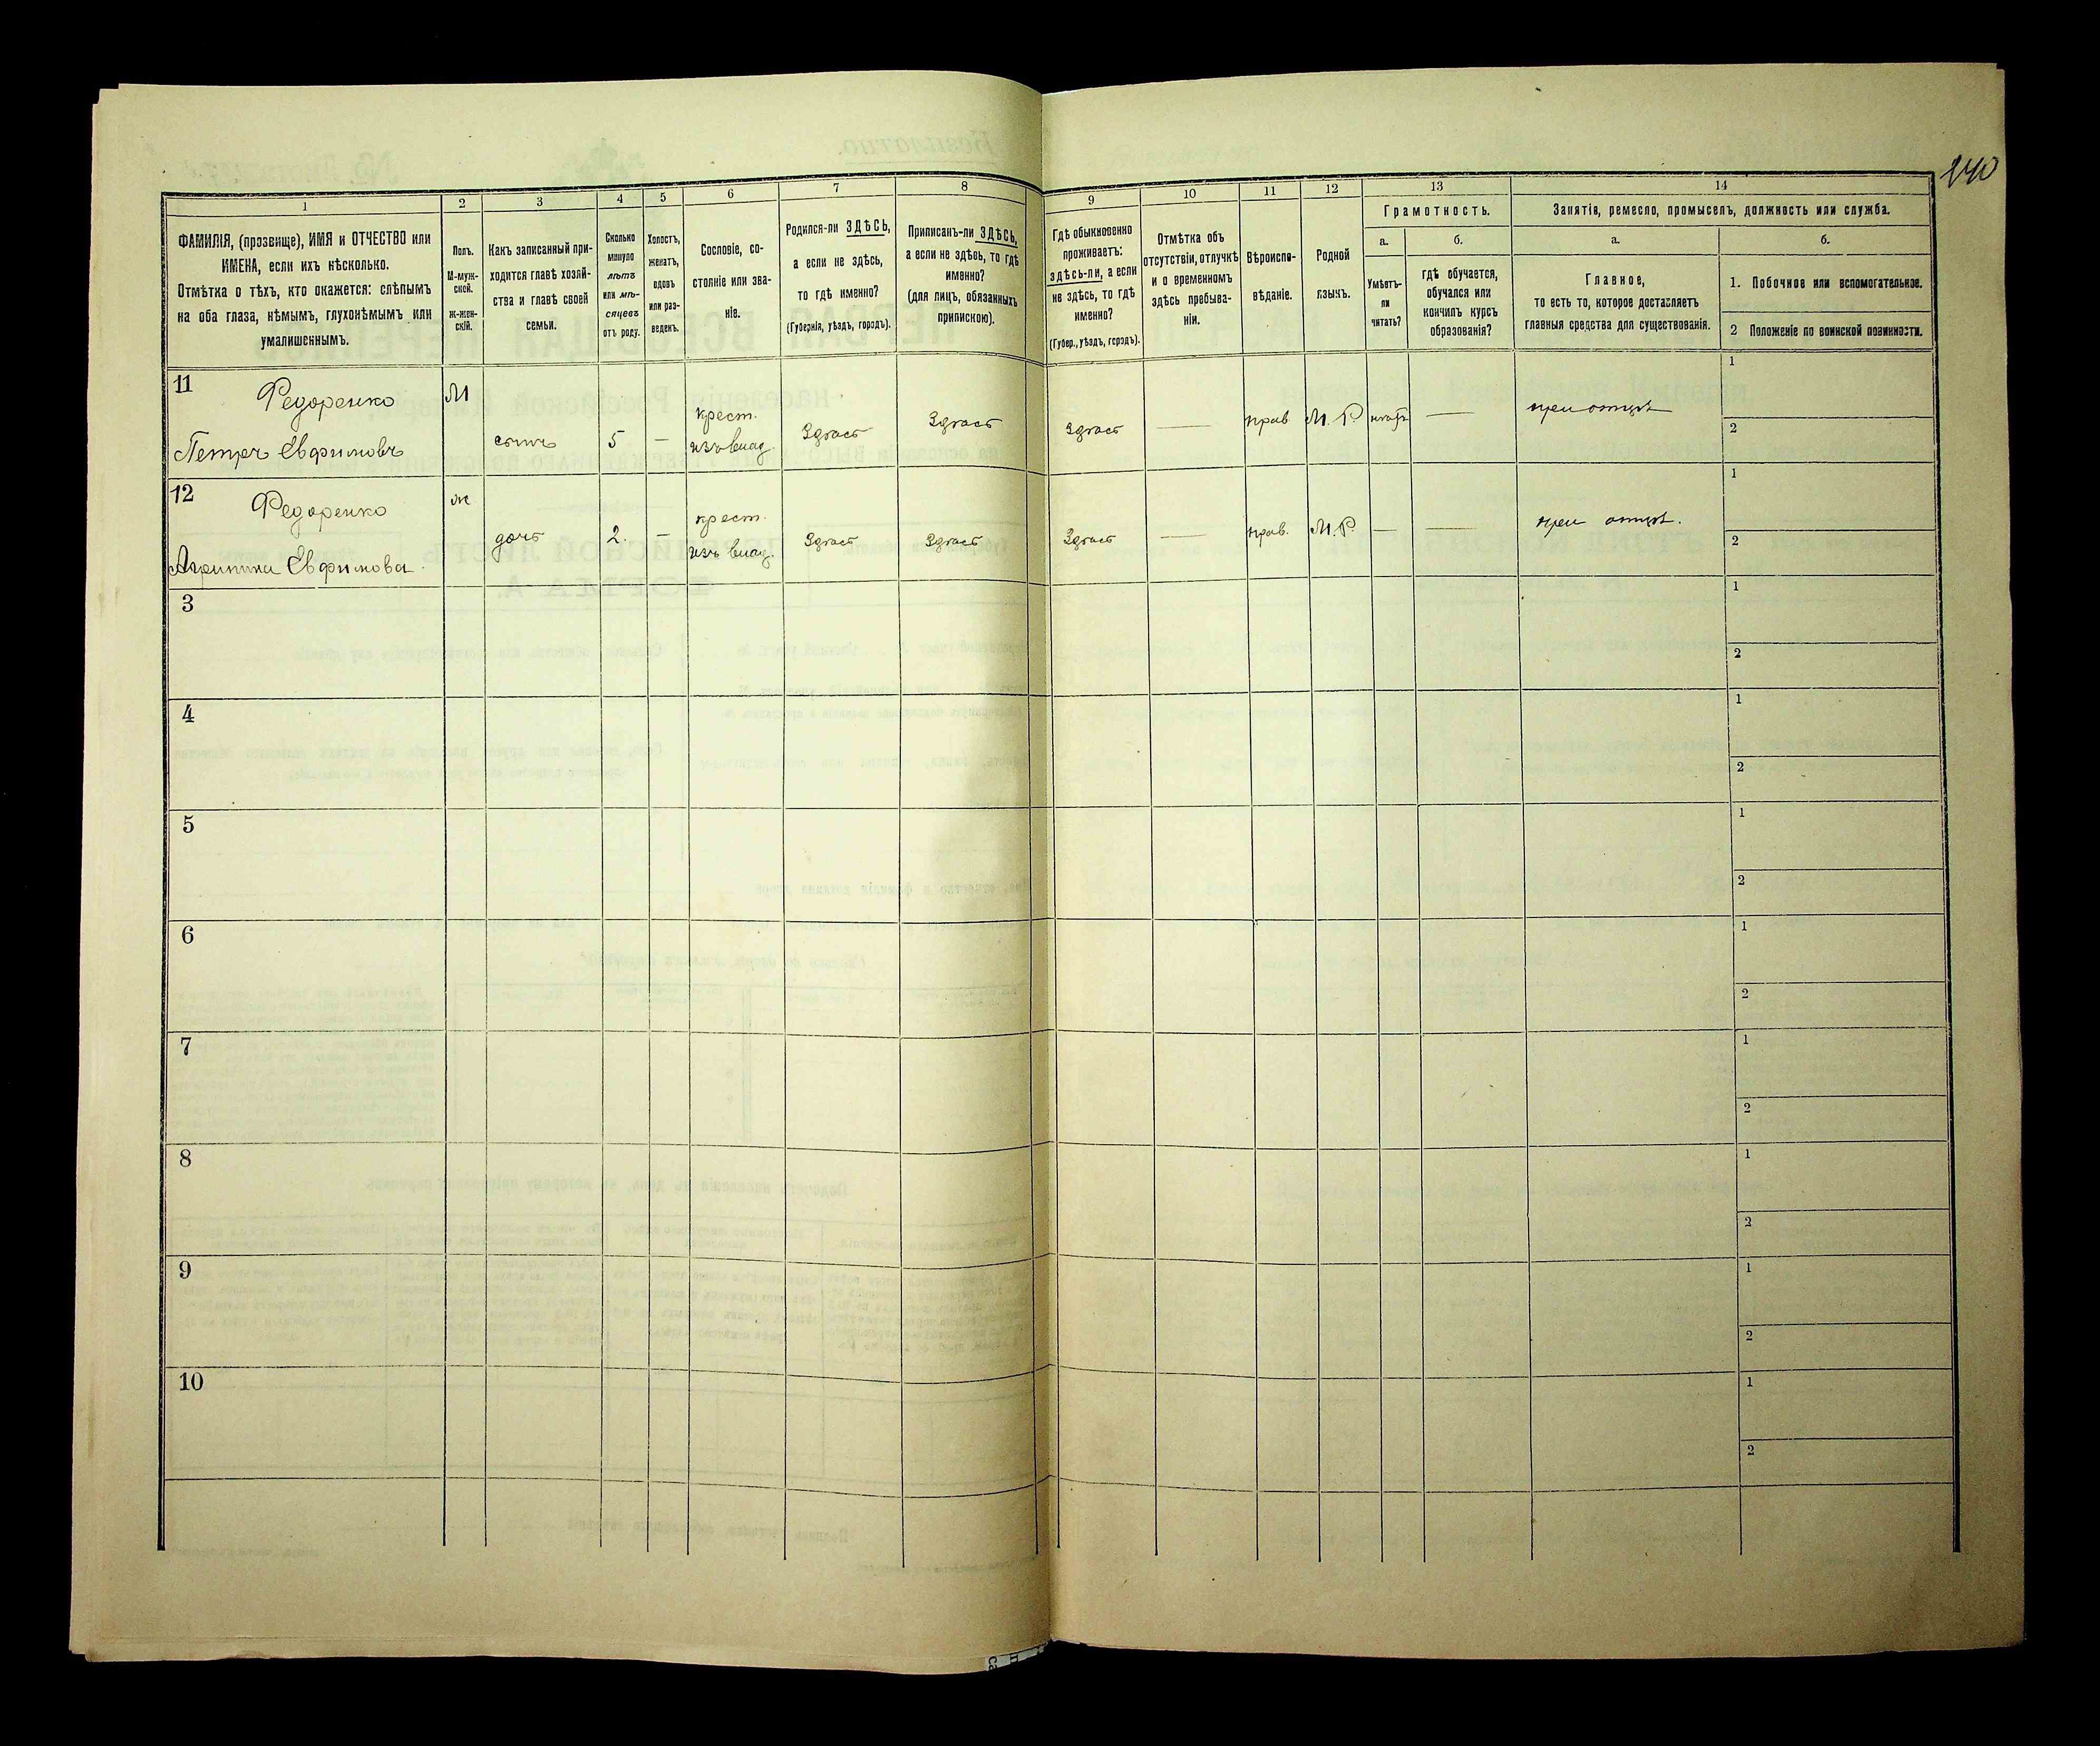 140
1
2
3
4
5
6
7
8
9
10
11
12
13
14
ФАМИЛІЯ, (прозвище), ИМЯ и ОТЧЕСТВО или
ИМЕНА, если ихъ нѣсколько.
Отмѣтка о тѣхъ, кто окажется: слѣпымъ
на оба глаза, нѣмымъ, глухонѣмымъ или
умалишеннымъ.
Полъ.
М-муж-
ской.
Ж-жен-
скій.
Какъ записанный при-
ходится главѣ хозяй-
ства и главѣ своей
семьи.
Сколько
минуло
лѣтъ
или мѣ-
сяцевъ
отъ роду.
Холостъ,
женатъ,
вдовъ
или раз-
веденъ.
Сословіе, со-
стояніе или зва-
ніе.
Родился-ли ЗДѢСЬ,
а если не здѣсь,
то гдѣ именно?
(Губернія, уѣздъ, городъ).
Приписанъ-ли ЗДѢСЬ,
а если не здѣсь, то гдѣ
именно?
(для лицъ, обязанныхъ
припискою).
Гдѣ обыкновенно
проживаетъ:
здѣсь-ли, а если
не здѣсь, то гдѣ
именно?
(Губер., уѣздъ, городъ).
Отмѣтка объ
отсутствіи, отлучкѣ
и о временномъ
здѣсь пребыва-
ніи.
Вѣроиспо-
вѣданіе.
Родной
языкъ.
Грамотность.
а.
Умѣетъ-
ли
читать?
б.
гдѣ обучается,
обучался или
кончилъ курсъ
образованія?
Занятія, ремесло, промыселъ, должность или служба.
а.
Главное,
то есть то, которое доставляетъ
главныя средства для существованія.
б.
1. Побочное или вспомогательное.
2 Положеніе по воинской повинности.
11
Федоренко
Петръ Евфимовъ
М
сынъ
5
—
крест.
изъ влад.
Здѣсь
Здѣсь
Здѣсь
—
прав
М. Р.
нѣтъ
—
при отцѣ
1
2
12
Федоренко
Агрипина Евфимова
ж
дочь
2.
—
крест.
изъ влад.
Здѣсь
Здѣсь
Здѣсь
—
прав.
М. Р.
—
—
при отцѣ.
1
2
3
1
2
4
1
2
5
1
2
6
1
2
7
1
2
8
1
2
9
1
2
10
1
2